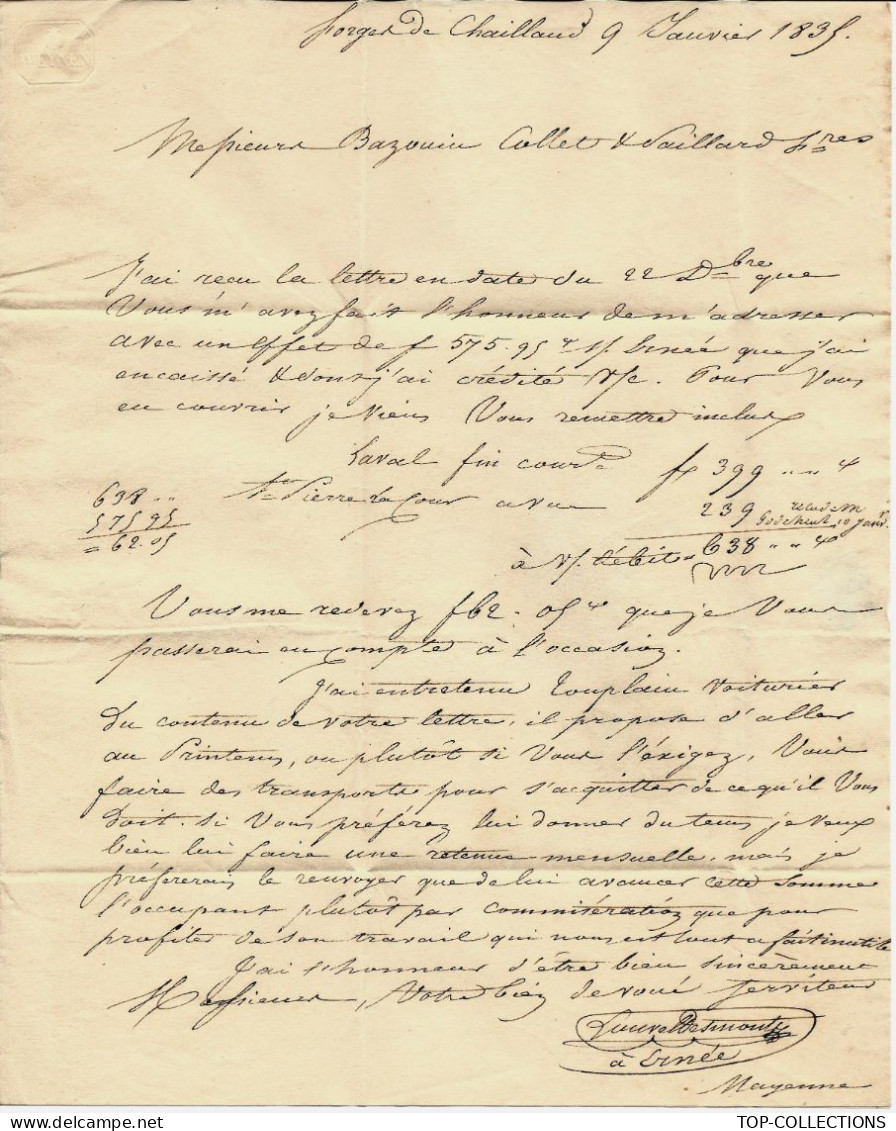 forges de Chailland 9 Janvier 1835.
Messieurs Bazouin Collet & Vaillard fres
J'ai recu la lettre en date du 22 Dbre que
Vous m'avez fait l'honneur de m'adresser
avec un Effet de f 575.95 c s/ Ernée que j'ai
encaissé & dont j'ai crédité V/c. Pour Vous
en couvrir je viens Vous remettre inclus
Laval fin court f 399 " " c
638 " "
575 95
= 62.05
St Pierre la Cour a vue 239
10 Janv.
à V/ Débit = 638 " " c
Vous me redevez f 62. 05 c que je Vous
passerai en compte à l'occasion.
J'ai entretenu Touplain Voiturier
du contenu de votre lettre, il propose d'aller
au Printems, ou plutôt si Vous l'éxigez, Vous
faire des transports pour s'acquitter de ce qu'il Vous
doit. si Vous préférez lui donner du tems je veux
bien lui faire une retenue mensuelle. mais je
préfererais le renvoyer que de lui avancer cette somme
l'occupant plutôt par commisération que pour
profiter de son travail qui nous est tout a fait inutile
J'ai l'honneur d'être bien sincèrement
Messieurs, Votre bien devoué serviteur
à Ernée
Mayenne
TOP-COLLECTIONS